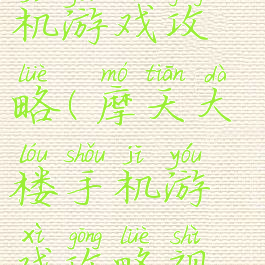 机游戏攻
lüè mó tiān dà
略(摩天大
lóu shǒu jī yóu
楼手机游
xì gōng lüè shì
戏攻略视